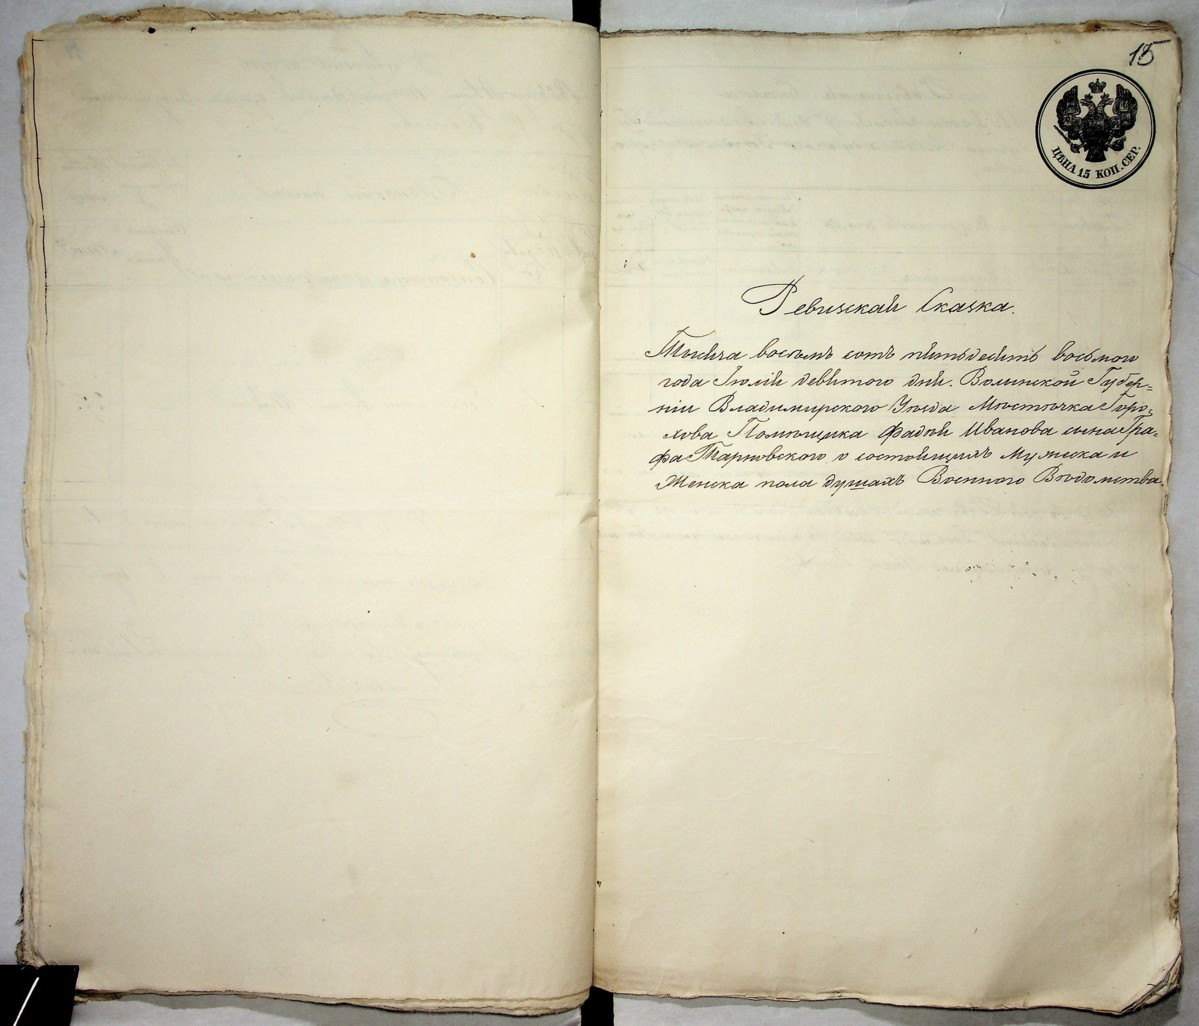 15
ЦѢНА 15 КОП. СЕР.
Ревизская Сказка.
Тысяча восемь сотъ пятьдесятъ восьмого
года Іюля девятого дня. Волынской Губер-
ніи Владимирского Уѣзда Мѣстечка Горо-
хова Помѣщика Фадѣя Иванова сына Гра-
фа Тарновского о состоящихъ Мужеска и
Женска пола душахъ Военного Вѣдомства.